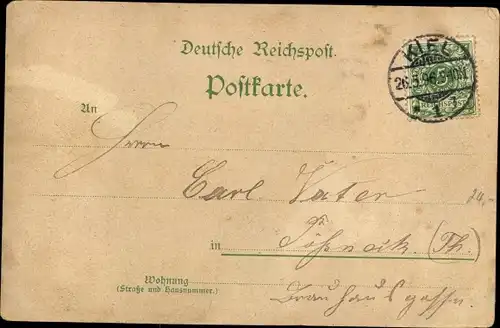 Deutsche Reichspost.
Postkarte.
KIEL
26.5.96
An
Herrn
Carl Vater
24,-
in Pößneck (Th.)
Wohnung
(Straße und Hausnummer.)
Brauhausgasse.